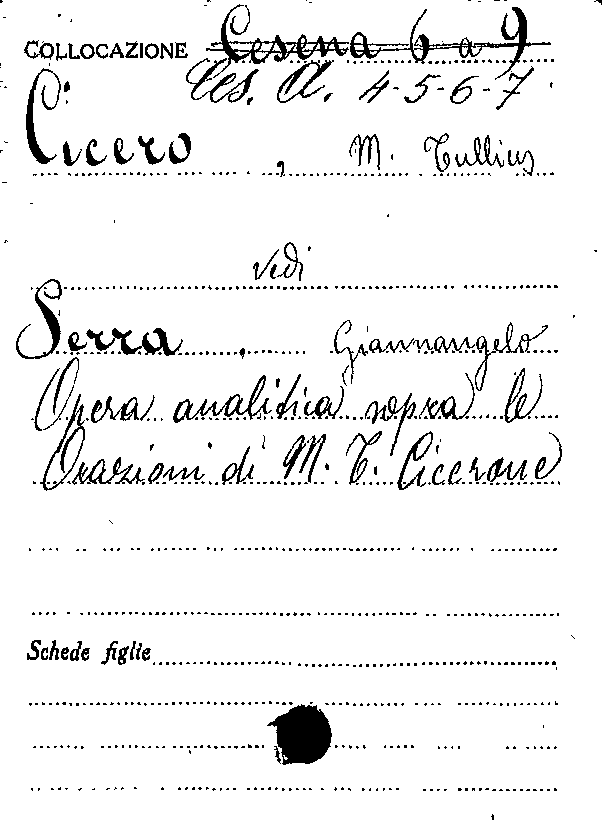 COLLOCAZIONE Cesena 6 a 9
Ces. A. 4-5-6-7
Cicero, M. Tullius
vedi
Serra, Giannangelo
Opera analitica sopra le
Orazioni di M. T. Cicerone
Schede figlie